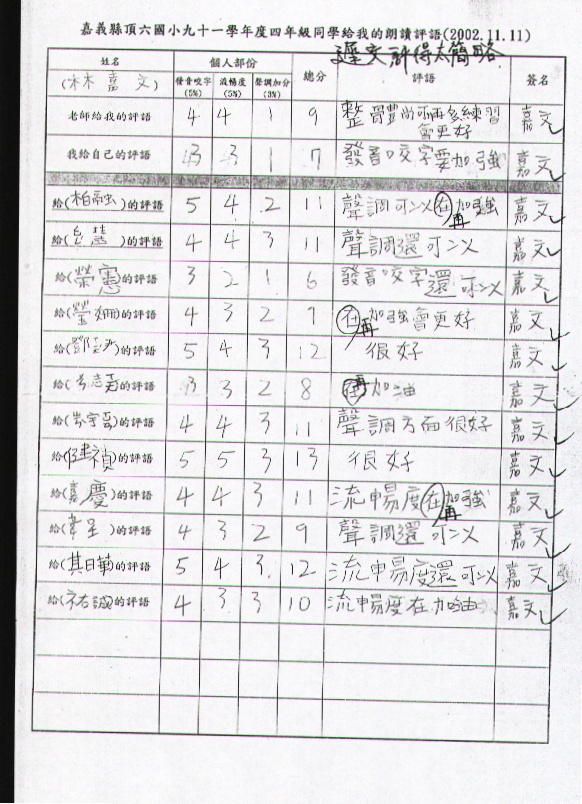 嘉義縣頂六國小九十一學年度四年級同學給我的朗讀評語(2002.11.11)
評得太簡略
姓名 個人部份 總分 評語 簽名
(林嘉文) 發音咬字(5%) 流暢度(5%) 聲調加分(3%)
老師給我的評語 4 4 1 9 整體尚可再多練習會更好 嘉文
我給自己的評語 3 3 1 7 發音咬字要加強 嘉文
給(柏融)的評語 5 4 2 11 聲調可以在再加強 嘉文
給( 慧)的評語 4 4 3 11 聲調還可以 嘉文
給(榮憲)的評語 3 2 1 6 發音咬字還可以 嘉文
給(瑩姍)的評語 4 3 2 9 在再加強會更好 嘉文
給(鄧 )的評語 5 4 3 12 很好 嘉文
給( 志 )的評語 3 3 2 8 在再加油 嘉文
給( 宇 )的評語 4 4 3 11 聲調方面很好 嘉文
給( 禎)的評語 5 5 3 13 很好 嘉文
給(嘉慶)的評語 4 4 3 11 流暢度在再加強 嘉文
給( )的評語 4 3 2 9 聲調還可以 嘉文
給(其曄)的評語 5 4 3 12 流暢度還可以 嘉文
給(祐誠)的評語 4 3 3 10 流暢度在加油 嘉文